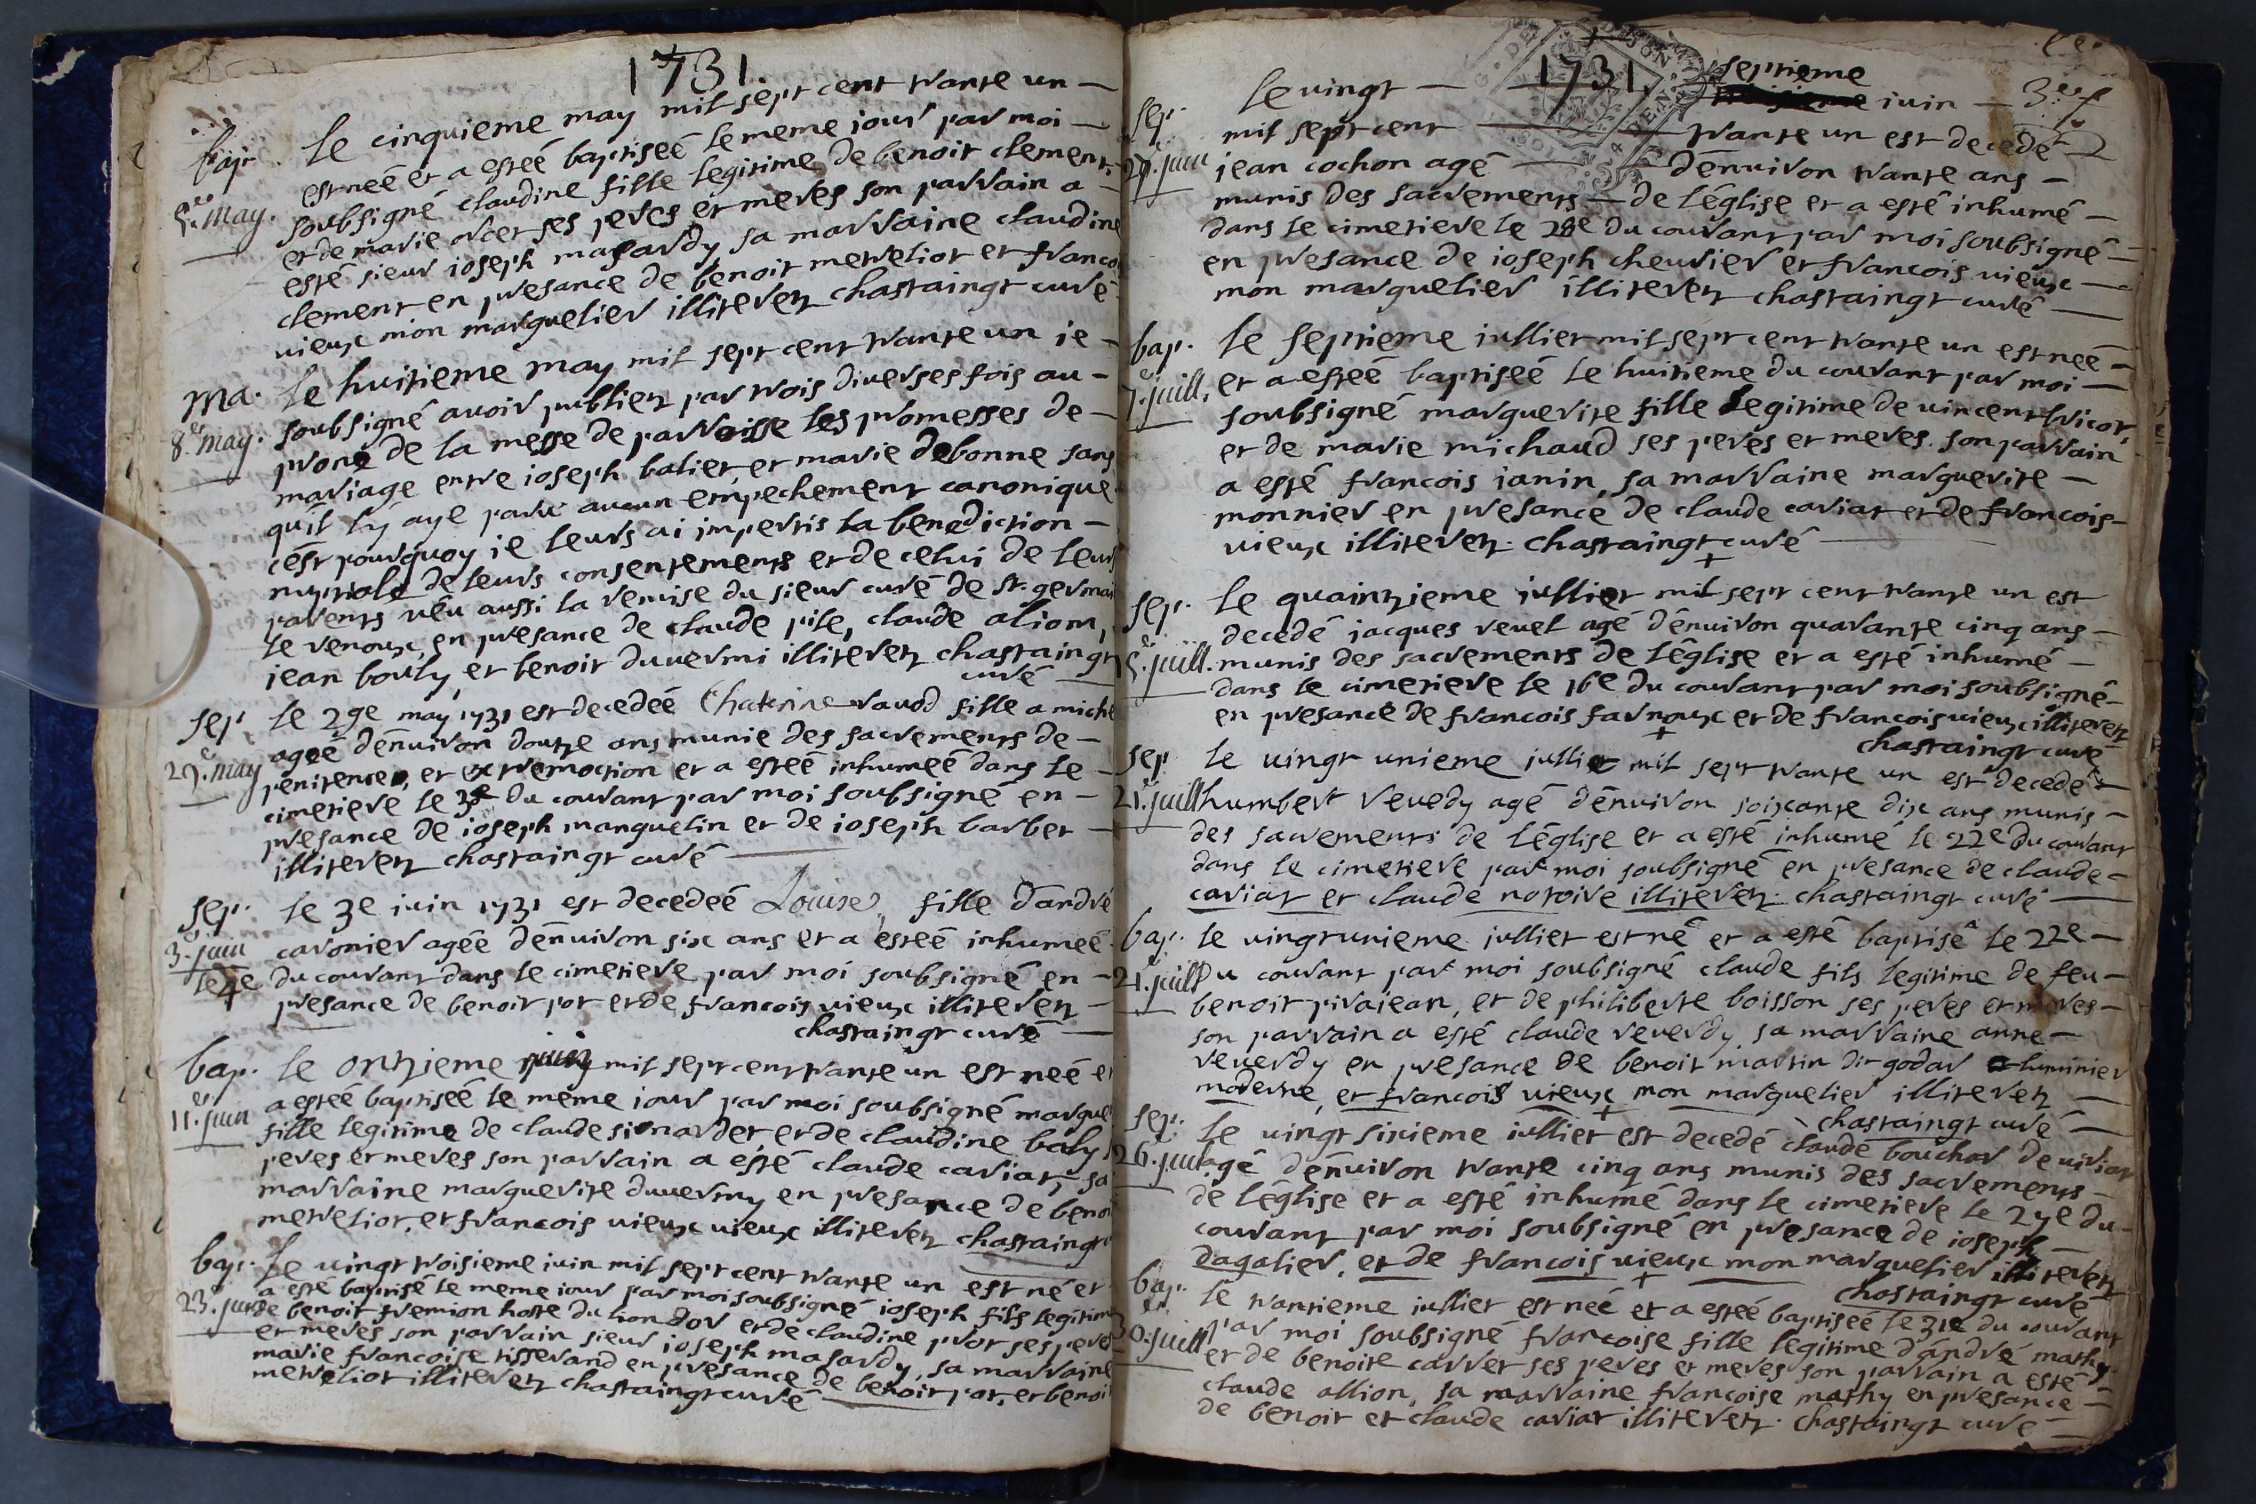 1731.
bap. le cinquieme may mil sept cent trante un
est neé et a esteé baptiseé le meme iour par moi
5.e may. soubsigné claudine fille legitime de benoit clement,
et de marie orcet ses peres et meres son parrain a
esté sieur ioseph masardy sa marraine claudine
clement en presance de benoit metrelior et franco
vieux mon marguelier illiterez chastaingt curé
ma. le huitieme may mil sept cent trante un ie
8.e may. soubsigné avoir publiez par trois diverses fois au
prone de la messe de parroisse les promesses de
mariage entre ioseph balier, et marie debonne sans
qu'il ly aye paru aucun empechement canonique
c'est pourquoy ie leurs ai impertis la benediction
nuptiale de leurs consentements et de celui de leurs
parents vêu aussi la remise du sieur curé de st. germai
le renoux, en presance de claude pile, claude aliom,
jean bouly, et benoit duvermi illiterez chastaingt
curé
sep. le 29e may 1731 est decedeé Chaterine ravod fille a miche
29.e may ageé d'enuiron doutze ans munie des sacrements de
penitence, et extremoction et a esteé inhumeé dans le
cimetiere le 30e du courant par moi soubsigné en
presance de ioseph manguelin et de ioseph barbet
illiterez chastaingt curé
sep. le 3e iuin 1731 est decedeé Louise, fille d'andré
3.e juin caronier agée d'enuiron six ans et a esteé inhumeé
le 4e du courant dans le cimetiere par moi soubsigné en
presance de benoit pot et de francois vieux illiterez
chastaingt curé
bap. le ontzieme juin mil sept cent trante un est neé et
11.e juin a esteé baptiseé le même iour par moi soubsigné margue
fille legitime de claude sionardet, et de claudine baly s
peres et meres son parrain a esté claude cariat, sa
marraine marguerite duvermy en presance de benoi
metrelior, et francois vieux vieux illiterez chastaingt
bap. le vingt troisieme iuin mil sept cent trante un est né et
a esté baptisé le meme iour par moi soubsigné ioseph fils legitime
23.e juin de benoit fremion hoste du lion dor et de claudine prost ses peres
et meres son parrain sieur ioseph masardy, sa marraine
marie francoise tisserand en presance de benoit pot, et benoit
metrelior illiterez chastaingt curé
1731.
sep. le vingt septieme iuin 3e
mil sept cent trante un est decedé
27. juin jean cochon agé d'enuiron trante ans
munis des sacrements de l'église et a esté inhumé
dans le cimetiere le 28e du courant par moi soubsigné
en presance de ioseph cheurier et francois vieux
mon marguelier illiterez chastaingt curé
bap. le septieme iullier mil sept cent trante un est neé
7.e juill. et a esteé baptiseé le huitieme du courant par moi
soubsigné marguerite fille legitime de vincent bricot,
et de marie michaud ses peres et meres. son parrain
a esté francois ianin, sa marraine marguerite
monnier en presance de claude cariat et de francois
vieux illiterez. chastaingt curé
sep. le quaintzieme iullier mil sept cent trante un est
decedé jacques revel agé d'enuiron quarante cinq ans
15.e juill. munis des sacrements de l'église et a esté inhumé
dans le cimetiere le 16e du courant par moi soubsigné
en presance de francois farnoux et de francois vieux illiterez
chastaingt curé
sep. le vingt unieme iullier mil sept trante un est decedé
21.e juill humbert reuedy agé d'enuiron soixante dix ans munis
des sacrements de l'église et a esté inhumé le 22e du courant
dans le cimetiere par moi soubsigné en presance de claude
cariat et claude notoire illiterez. chastaingt curé
bap. le vingt unieme iullier est né et a esté baptisé le 22e
21.e juill du courant par moi soubsigné claude fils legitime de feu
benoit pivajean, et de philiberte boisson ses peres et meres
son parrain a esté claude reuerdy, sa marraine anne
reuerdy en presance de benoit martin dit godar luminier
moderne, et francois vieux mon marguelier illiterez
chastaingt curé
sep. le vingt sixieme iullier est decedé claude bouchar de viriat
26. juill agé d'enuiron trante cinq ans munis des sacrements
de l'église et a esté inhumé dans le cimetiere le 27e du
courant par moi soubsigné en presance de ioseph
dagalier, et de francois vieux mon marguelier illiterez
chastaingt curé
bap. le trantieme iullier est neé et a esteé baptiseé le 31e du courant
30.e juill par moi soubsigné francoise fille legitime d'andré mathy
et de benoite carret ses peres et meres son parrain a esté
claude allion, sa marraine francoise mathy en presance
de benoit et claude cariat illiterez. chastaingt curé